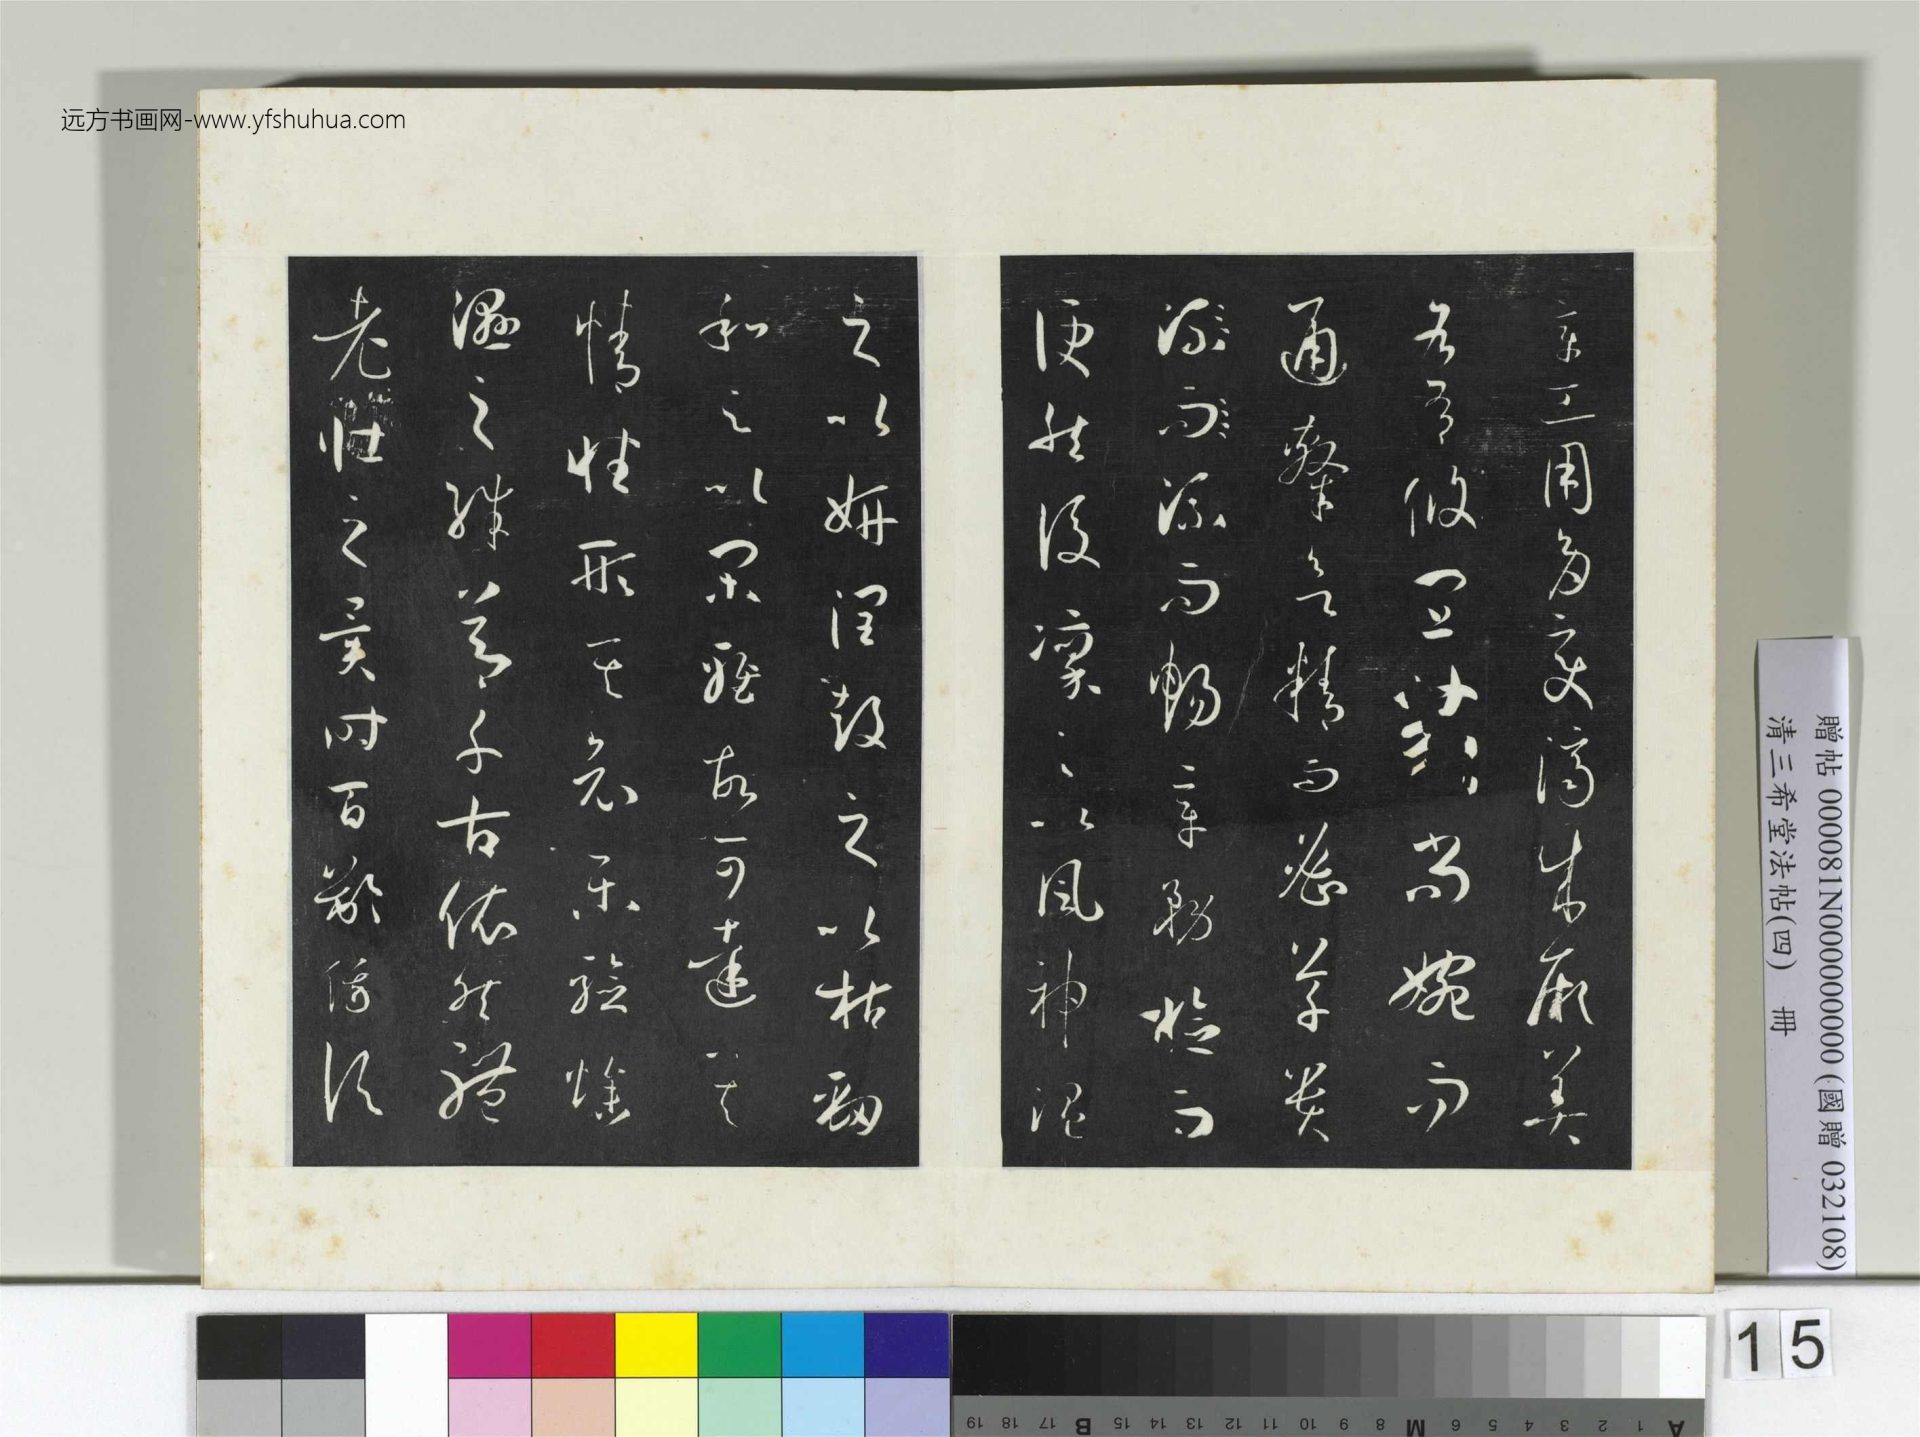 远方书画网-www.yfshuhua.com
章工用多變濟成厥美
各有攸宜篆尚婉而
通隸欲精而密草貴
流而流而暢章務檢而
便然後凜之以風神溫
之以妍潤鼓之以枯勁
和之以閑雅故可達其
情性形其哀樂驗燥
濕之殊節千古依然體
老壯之異時百齡俄頃
贈帖 000081N000000000 (國贈 032108)
清三希堂法帖(四) 冊
15
A 1 2 3 4 5 6 M 8 9 10 11 12 13 14 15 B 17 18 19